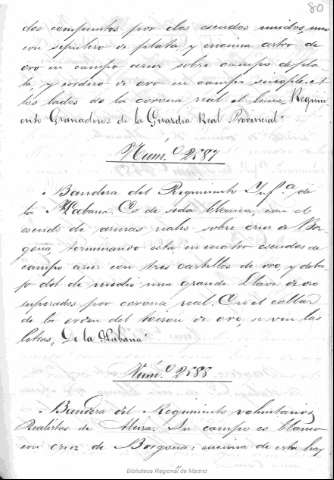 80
dos compuestos por dos escudos unidos, uno
con sepulcro de plata y encima astro de
oro en campo azur sobre campo de pla
ta, y cordero de oro en campo sinople. A
los lados de la corona real el lema Regimi
ento Granaderos de la Guardia Real Provincial"
Núm.º 2587
Bandera del Regimiento Inf.ª de
la Habana. Es de seda blanca, con el
escudo de armas reales sobre cruz de Bor
goña, terminando esta en cuatro escudos de
campo azur con tres castillos de oro, y deba
jo del de medio una grande llave de oro
superados por corona real. En el collar
de la orden del toison de oro, se ven las
letras, De la Habana"
Núm.º 2588
Bandera del Regimiento voluntarios
Realistas de Alcira. Su campo es blanco
con cruz de Borgoña: encima de esta hay
Biblioteca Regional de Madrid